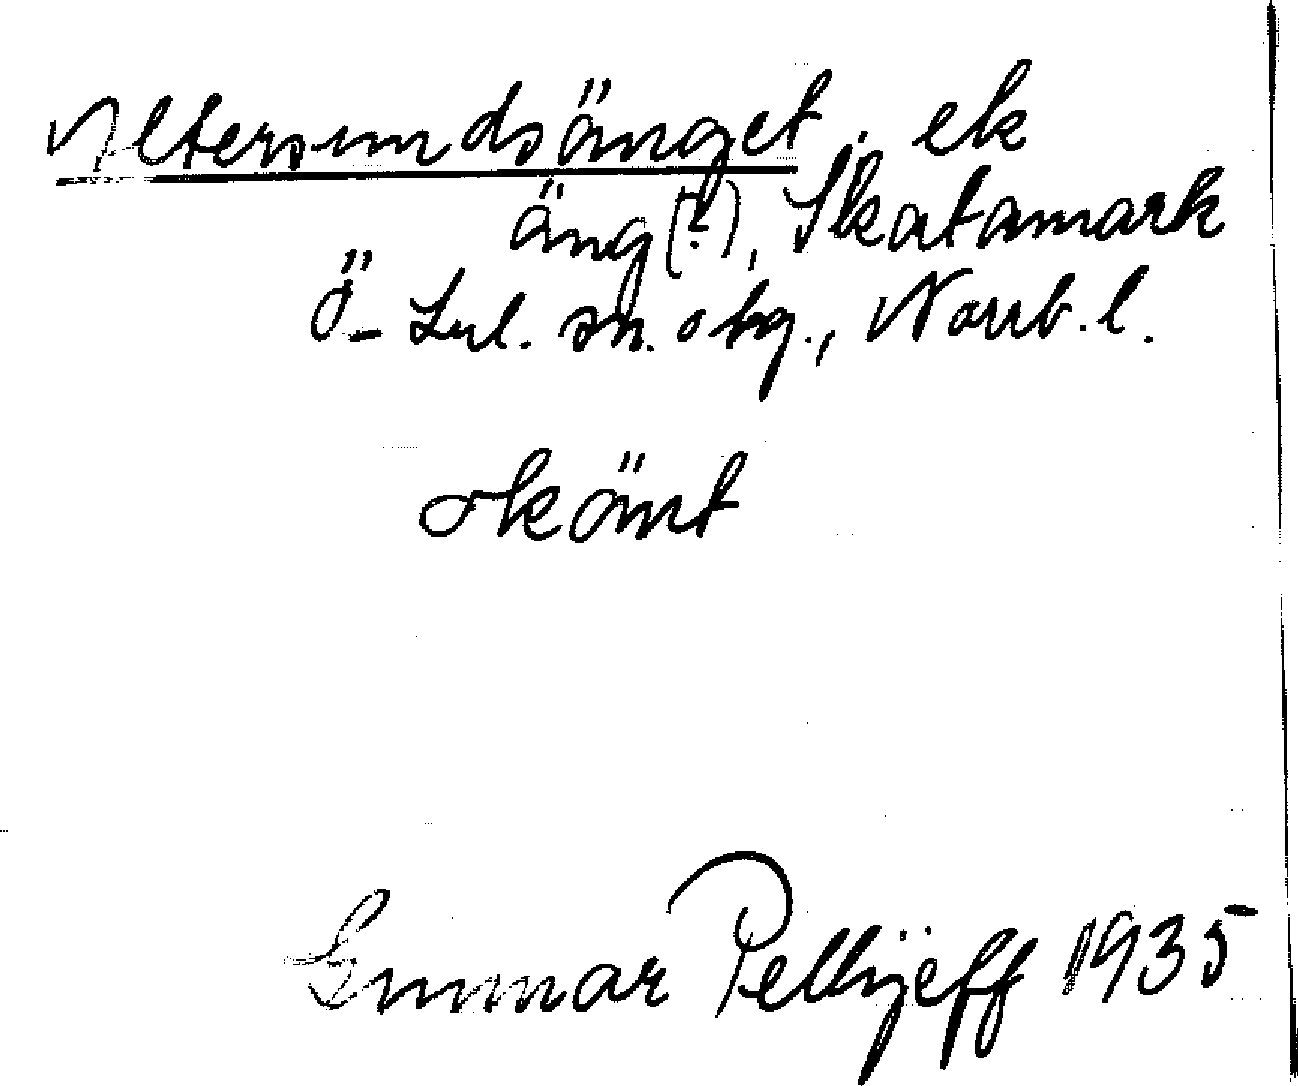 Altersundsänget, ek
äng(?), Skatamark
Ö-Lul. sn. o tg., Norrb. l.
okänt
Gunnar Pellijeff 1935